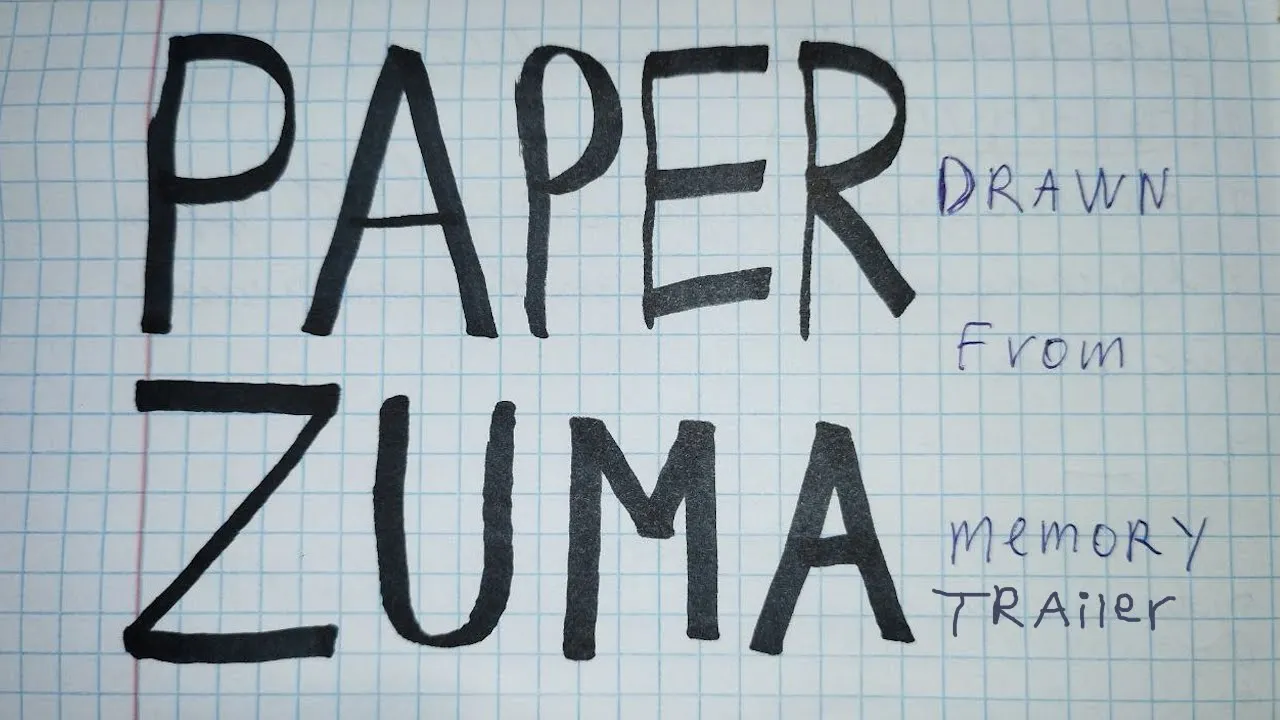 PAPER
ZUMA
DRAWN
From
memoRy
TRAiler